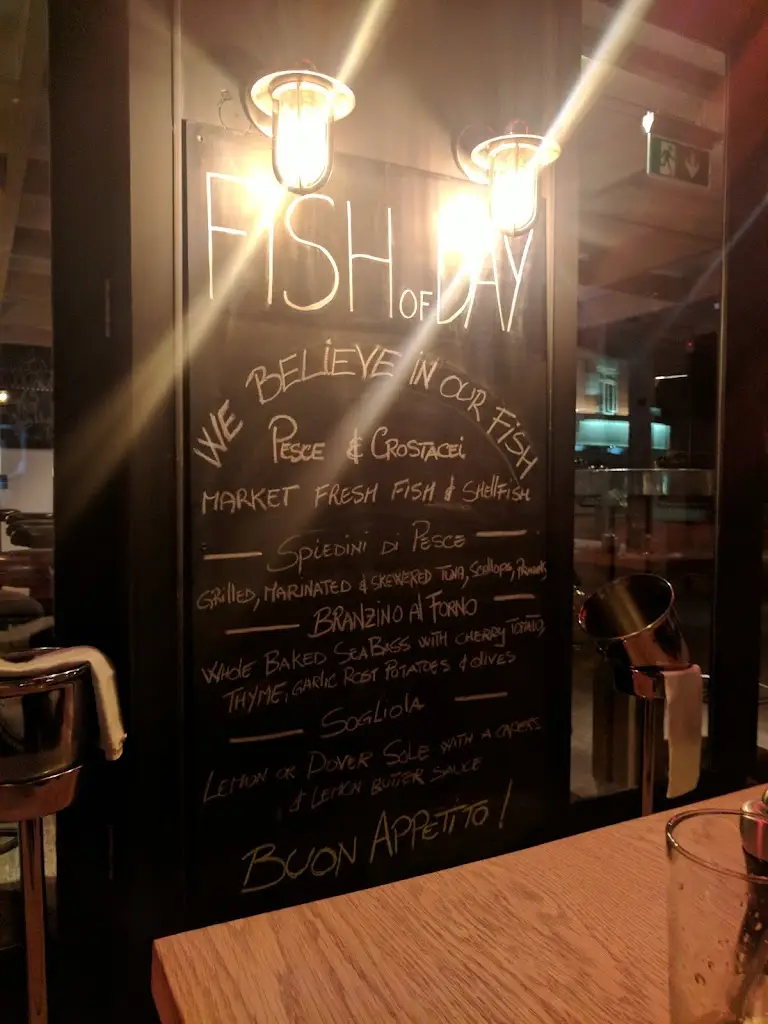 FISH OF DAY
WE BELIEVE IN OUR FISH
PESCE & CROSTACEI
MARKET FRESH FISH & SHELLFISH
SPIEDINI DI PESCE
GRILLED, MARINATED & SKEWERED TUNA, SCALLOPS, PRAWNS
BRANZINO AL FORNO
WHOLE BAKED SEABASS WITH CHERRY TOMATO,
THYME, GARLIC ROST POTATOES & OLIVES
SOGLIOLA
LEMON OR DOVER SOLE WITH A CAPERS
& LEMON BUTTER SAUCE
BUON APPETITO!